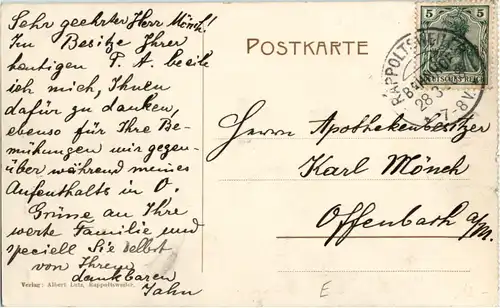 Sehr geehrter Herr Mönch!
Im Besitze Ihrer
heutigen P. A. beeile
ich mich, Ihnen
dafür zu danken,
ebenso für Ihre Be-
mühungen mir gegen-
über während meines
Aufenthalts in O.
Grüsse an Ihre
werte Familie und
speciell Sie selbst
von Ihrem
dankbaren
Jahn
Verlag: Albert Lutz, Rappoltsweiler.
POSTKARTE
5 5
DEUTSCHES REICH
RAPPOLTSWEILER
28.3
7-8V.
Herrn Apothekenbesitzer
Karl Mönch
Offenbach a/M.
E